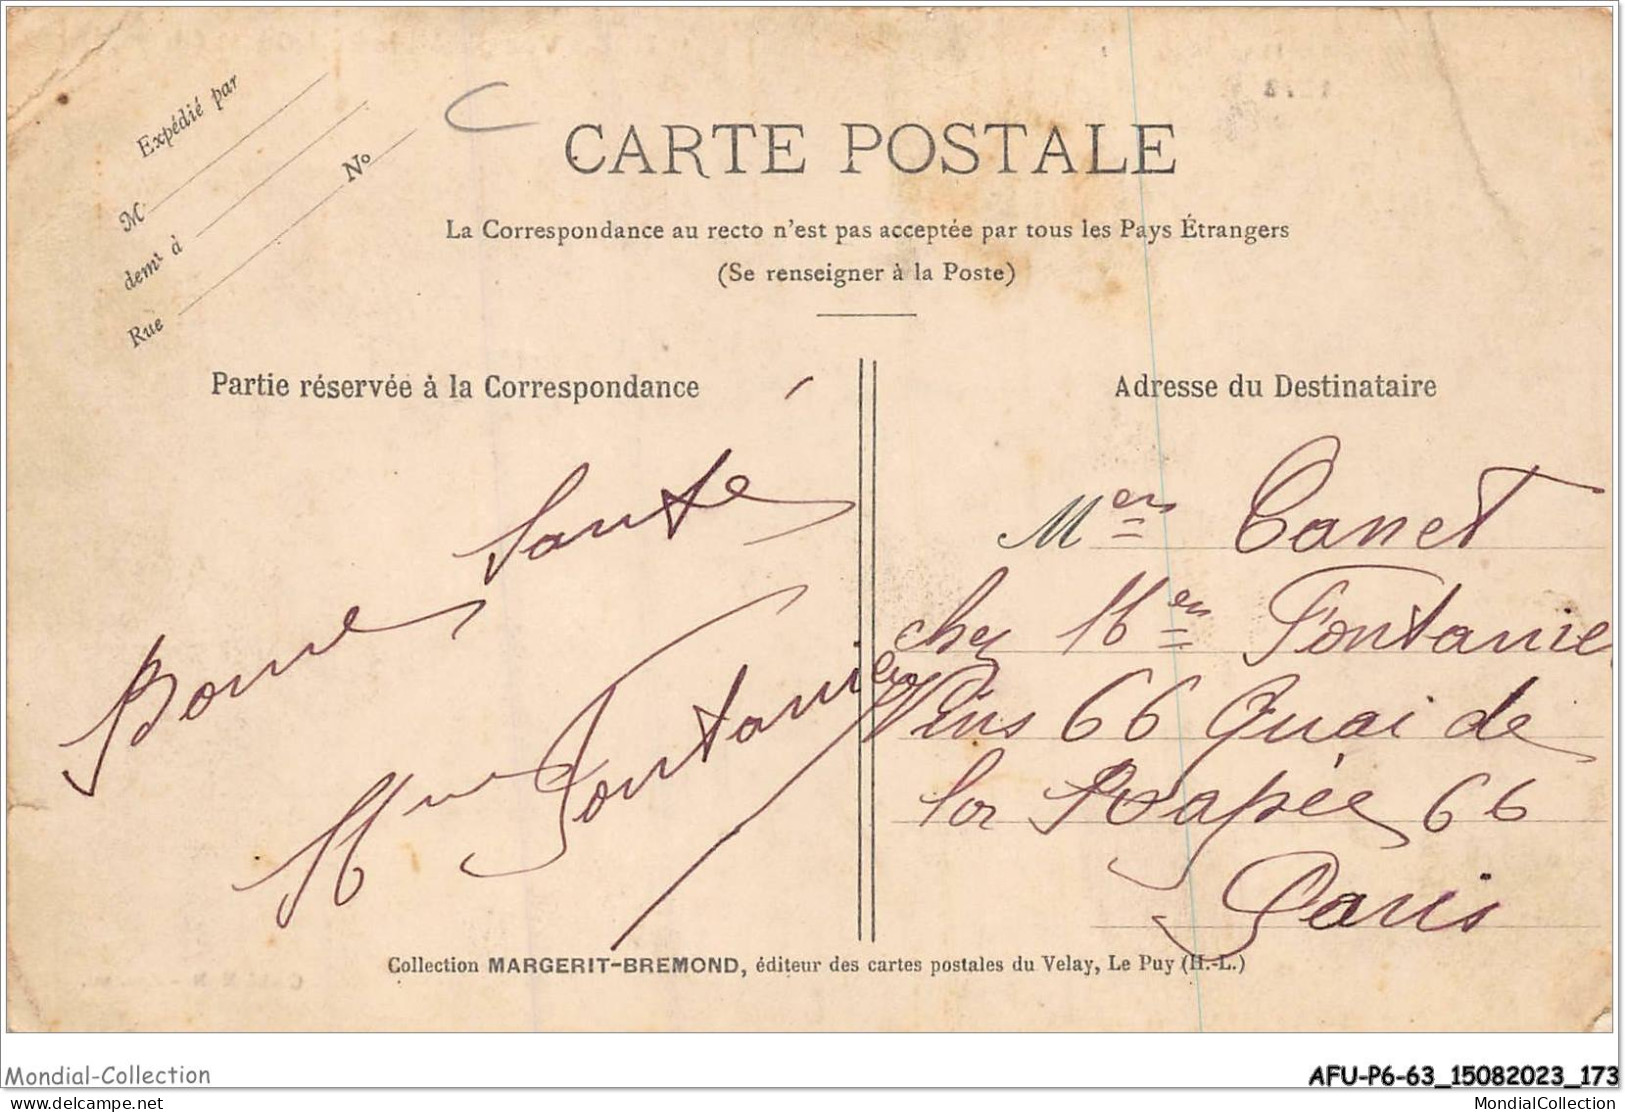 Expédié par
M
demt à
Rue No
CARTE POSTALE
La Correspondance au recto n'est pas acceptée par tous les Pays Étrangers
(Se renseigner à la Poste)
Partie réservée à la Correspondance
Bonne Santé
Mme Fontanier
Adresse du Destinataire
Mers Canet
chez Mers Fontanie
Vins 66 Quai de
la Rapée 66
Paris
Collection MARGERIT-BREMOND, éditeur des cartes postales du Velay, Le Puy (H.-L.)
Mondial-Collection
AFU-P6-63_15082023_173
www.delcampe.net
MondialCollection